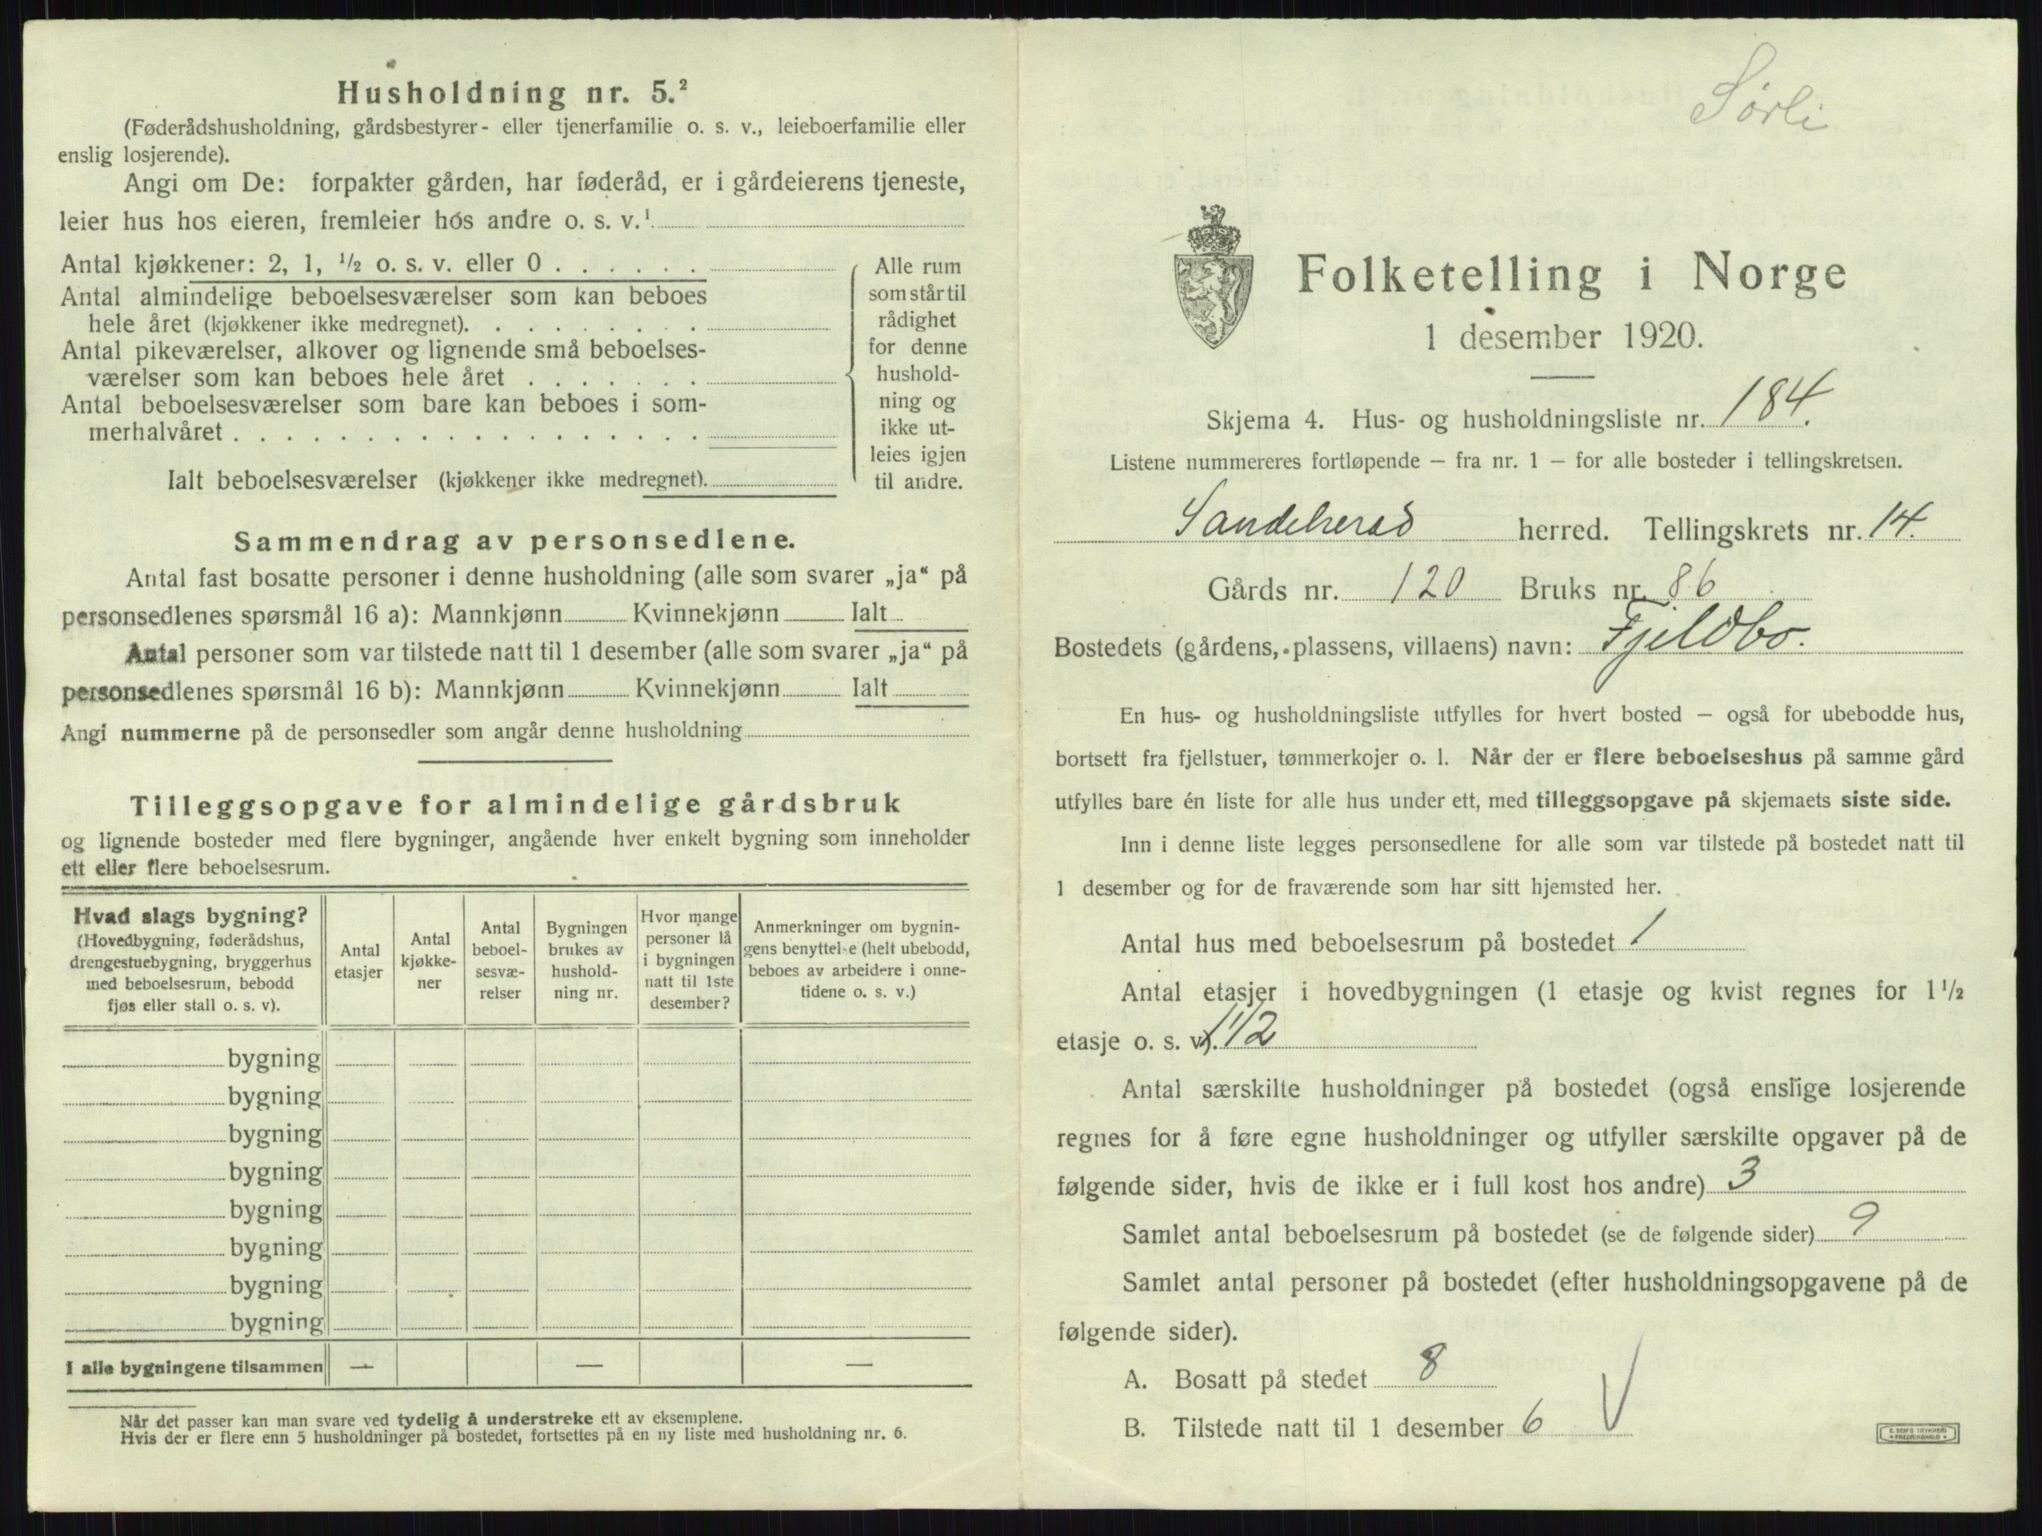 Husholdning nr. 5.²
(Føderådshusholdning, gårdsbestyrer- eller tjenerfamilie o. s. v., leieboerfamilie eller
enslig losjerende).
Angi om De: forpakter gården, har føderåd, er i gårdeierens tjeneste,
leier hus hos eieren, fremleier hos andre o. s. v.¹
Antal kjøkkener: 2, 1, ½ o. s. v. eller 0 . . . . . .
Antal almindelige beboelsesværelser som kan beboes
hele året (kjøkkener ikke medregnet). . . . . . . . .
Antal pikeværelser, alkover og lignende små beboelses-
værelser som kan beboes hele året . . . . . . .
Antal beboelsesværelser som bare kan beboes i som-
merhalvåret . . . . . . . . . . . . . . . . . .
Alle rum
som står til
rådighet
for denne
hushold-
ning og
ikke ut-
leies igjen
til andre.
Ialt beboelsesværelser (kjøkkener ikke medregnet).
Sammendrag av personsedlene.
Antal fast bosatte personer i denne husholdning (alle som svarer „ja“ på
personsedlenes spørsmål 16 a): Mannkjønn Kvinnekjønn Ialt
Antal personer som var tilstede natt til 1 desember (alle som svarer „ja“ på
personsedlenes spørsmål 16 b): Mannkjønn Kvinnekjønn Ialt
Angi nummerne på de personsedler som angår denne husholdning
Tilleggsopgave for almindelige gårdsbruk
og lignende bosteder med flere bygninger, angående hver enkelt bygning som inneholder
ett eller flere beboelsesrum.
Hvad slags bygning?
(Hovedbygning, føderådshus,
drengestuebygning, bryggerhus
med beboelsesrum, bebodd
fjøs eller stall o. s. v).
Antal
etasjer
Antal
kjøkke-
ner
Antal
beboel-
sesvæ-
relser
Bygningen
brukes av
hushold-
ning nr.
Hvor mange
personer lå
i bygningen
natt til 1ste
desember?
Anmerkninger om bygnin-
gens benyttelse (helt ubebodd,
beboes av arbeidere i onne-
tidene o. s. v.)
bygning
bygning
bygning
bygning
bygning
bygning
bygning
bygning
I alle bygningene tilsammen — — —
Når det passer kan man svare ved tydelig å understreke ett av eksemplene.
Hvis der er flere enn 5 husholdninger på bostedet, fortsettes på en ny liste med husholdning nr. 6.
Sørli
Folketelling i Norge
1 desember 1920.
Skjema 4. Hus- og husholdningsliste nr. 184.
Listene nummereres fortløpende – fra nr. 1 – for alle bosteder i tellingskretsen.
Sandeherad herred. Tellingskrets nr. 14.
Gårds nr. 120 Bruks nr. 86
Bostedets (gårdens, plassens, villaens) navn: Fjeldbo.
En hus- og husholdningsliste utfylles for hvert bosted – også for ubebodde hus,
bortsett fra fjellstuer, tømmerkojer o. l. Når der er flere beboelseshus på samme gård
utfylles bare én liste for alle hus under ett, med tilleggsopgave på skjemaets siste side.
Inn i denne liste legges personsedlene for alle som var tilstede på bostedet natt til
1 desember og for de fraværende som har sitt hjemsted her.
Antal hus med beboelsesrum på bostedet 1
Antal etasjer i hovedbygningen (1 etasje og kvist regnes for 1½
etasje o. s. v). 1 1/2
Antal særskilte husholdninger på bostedet (også enslige losjerende
regnes for å føre egne husholdninger og utfyller særskilte opgaver på de
følgende sider, hvis de ikke er i full kost hos andre) 3
Samlet antal beboelsesrum på bostedet (se de følgende sider) 9
Samlet antal personer på bostedet (efter husholdningsopgavene på de
følgende sider).
A. Bosatt på stedet 8
B. Tilstede natt til 1 desember 6